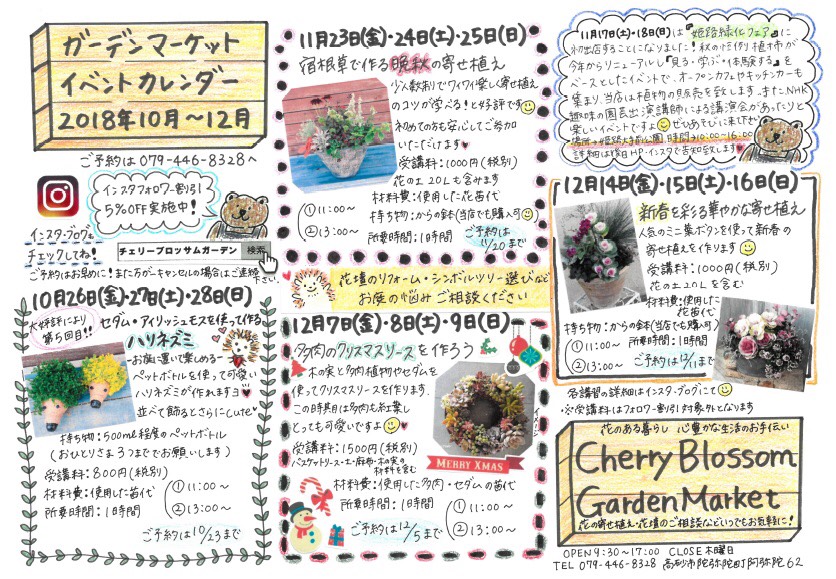 ガーデンマーケット
イベントカレンダー
2018年10月〜12月
ご予約は 079-446-8328へ
インスタフォロワー割引！
5%OFF実施中！
インスタ・ブログも
チェックしてね！
チェリーブロッサムガーデン 検索
ご予約はお早めに！また万が一キャンセルの場合はご連絡
下さい。
10月26日(金)・27日(土)・28日(日)
大好評により
第5回目!!
セダム・アイリッシュモスを使って作る
ハリネズミ
ーお庭に置いて楽しめるー
ペットボトルを使って可愛い
ハリネズミが作れますヨ♥
並べて飾るとさらにcute♥
持ち物：500ml程度のペットボトル
(おひとりさま3つまでお願いします)
受講料：800円(税別)
材料費：使用した苗代
所要時間：1時間
①11:00〜
②13:00〜
ご予約は10/23まで
11月23日(金)・24日(土)・25日(日)
宿根草で作る晩秋の寄せ植え
少人数制でワイワイ楽しく寄せ植え
のコツが学べる！と好評です
初めての方も安心してご参加
いただけます♥
受講料：1000円(税別)
花の土20Lも含みます
材料費：使用した花苗代
持ち物：からの鉢(当店でも購入可)
所要時間：1時間
①11:00〜
②13:00〜
ご予約は
11/20まで
花壇のリフォーム・シンボルツリー選びなど
お庭の悩みご相談ください
12月7日(金)・8日(土)・9日(日)
多肉のクリスマスリースを作ろう
木の実と多肉植物やセダムを
使ってクリスマスリースを作ります。
この時期は多肉も紅葉し
とっても可愛いですよ
受講料：1500円(税別)
バスケットリース・土・麻布・木の実の
材料を含む
材料費：使用した多肉・セダムの苗代
所要時間：1時間
①11:00〜
②13:00〜
ご予約は12/5まで
MERRY XMAS
11月17日(土)・18日(日)は『姫路緑化フェア』に
初出店することになりました！秋の恒例植木市が
今年からリニューアルし『見る・学ぶ・体験する』を
ベースとしたイベントで、オープンカフェやキッチンカーも
集まり、当店は植物の販売を致します。またNHK
趣味の園芸出演講師による講演会があったりと
楽しいイベントですよ ぜひあそびに来て下さい
場所→姫路大手前公園 時間→10:00〜16:00
詳細は後日HP・インスタで告知致します♥
12月14日(金)・15日(土)・16日(日)
新春を彩る華やかな寄せ植え
人気のミニ葉ボタンを使って新春の
寄せ植えを作ります
受講料：1000円(税別)
花の土20Lを含む
材料費：使用した
花苗代
持ち物：からの鉢(当店でも購入可)
所要時間：1時間
①11:00〜
②13:00〜
ご予約は12/11まで
各講習の詳細はインスタ・ブログにて
※受講料はフォロワー割引対象外となります
花のある暮らし 心豊かな生活のお手伝い
Cherry Blossom
Garden Market
花の寄せ植え・花壇のご相談などいつでもお気軽に！
OPEN 9:30〜17:00 CLOSE 木曜日
TEL 079-446-8328 高砂市阿弥陀町阿弥陀62